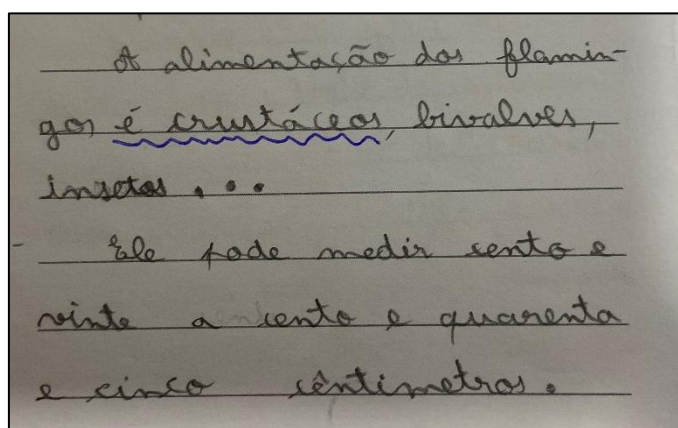 A alimentação dos flamin-
gos é crustáceos, bivalves,
insetos...
Ele pode medir cento e
vinte a cento e quarenta
e cinco cêntimetros.